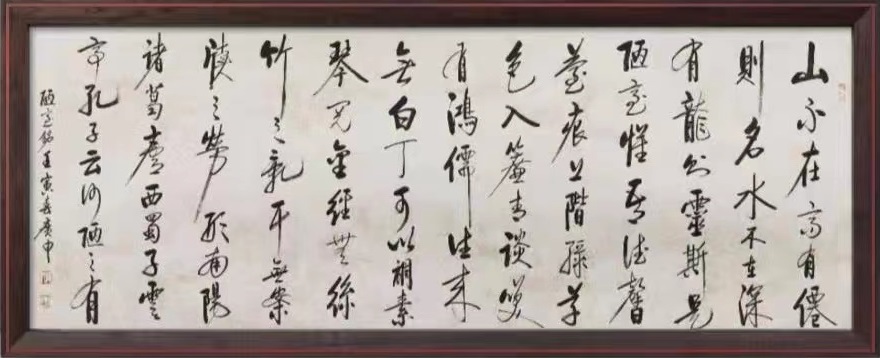 山不在高有僊
則名水不在深
有龍則靈斯是
陋室惟吾德馨
苔痕上階綠草
色入簾青談笑
有鴻儒往來
無白丁可以調素
琴閱金經無絲
竹之亂耳無案
牘之勞形南陽
諸葛廬西蜀子雲
亭孔子云何陋之有
陋室銘壬寅